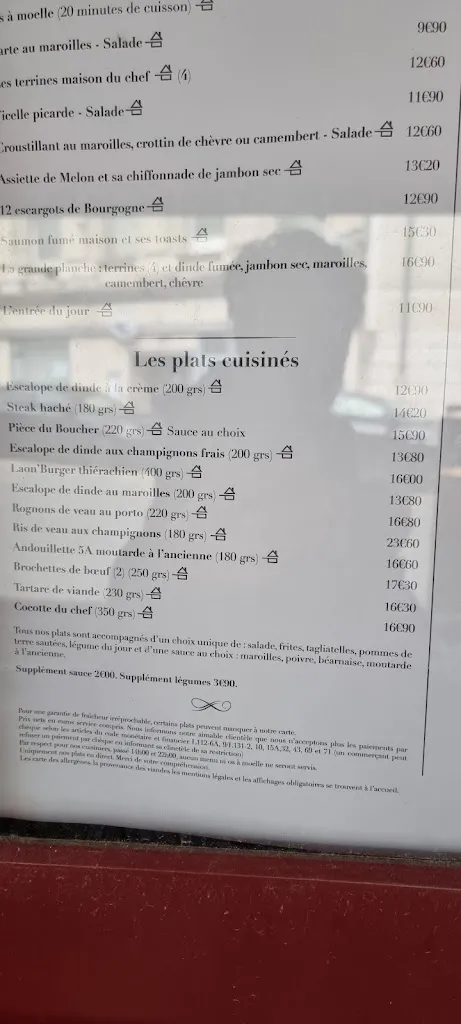 s à moelle (20 minutes de cuisson)
9€90
arte au maroilles - Salade
12€60
es terrines maison du chef (4)
11€90
icelle picarde - Salade
12€60
Croustillant au maroilles, crottin de chèvre ou camembert - Salade
13€20
Assiette de Melon et sa chiffonnade de jambon sec
12€90
12 escargots de Bourgogne
15€30
Saumon fumé maison et ses toasts
16€90
La grande planche : terrines (4) et dinde fumée, jambon sec, maroilles,
camembert, chèvre
11€90
L'entrée du jour
Les plats cuisinés
Escalope de dinde à la crème (200 grs) 12€90
Steak haché (180 grs) 14€20
Pièce du Boucher (220 grs) Sauce au choix 15€90
Escalope de dinde aux champignons frais (200 grs) 13€80
Laon'Burger thiérachien (400 grs) 16€00
Escalope de dinde au maroilles (200 grs) 13€80
Rognons de veau au porto (220 grs) 16€80
Ris de veau aux champignons (180 grs) 23€60
Andouillette 5A moutarde à l'ancienne (180 grs) 16€60
Brochettes de bœuf (2) (250 grs) 17€30
Tartare de viande (230 grs) 16€30
Cocotte du chef (350 grs) 16€90
Tous nos plats sont accompagnés d'un choix unique de : salade, frites, tagliatelles, pommes de
terre sautées, légume du jour et d'une sauce au choix : maroilles, poivre, béarnaise, moutarde
à l'ancienne.
Supplément sauce 2€00. Supplément légumes 3€90.
Pour une garantie de fraîcheur irréprochable, certains plats peuvent manquer à notre carte.
Prix nets en euros service compris. Nous informons notre aimable clientèle que nous n'acceptons plus les paiements par
chèque selon les articles du code monétaire et financier L112-6A, 131-2, 10, 15A,32, 43, 69 et 71 (un commerçant peut
refuser un paiement par chèque en informant sa clientèle de sa restriction)
Par respect pour nos cuisiniers, passé 14h00 et 22h00, aucun menu ni os à moelle ne seront servis.
Uniquement nos plats en direct. Merci de votre compréhension.
Les carte des allergènes, la provenance des viandes les mentions légales et les affichages obligatoires se trouvent à l'accueil.